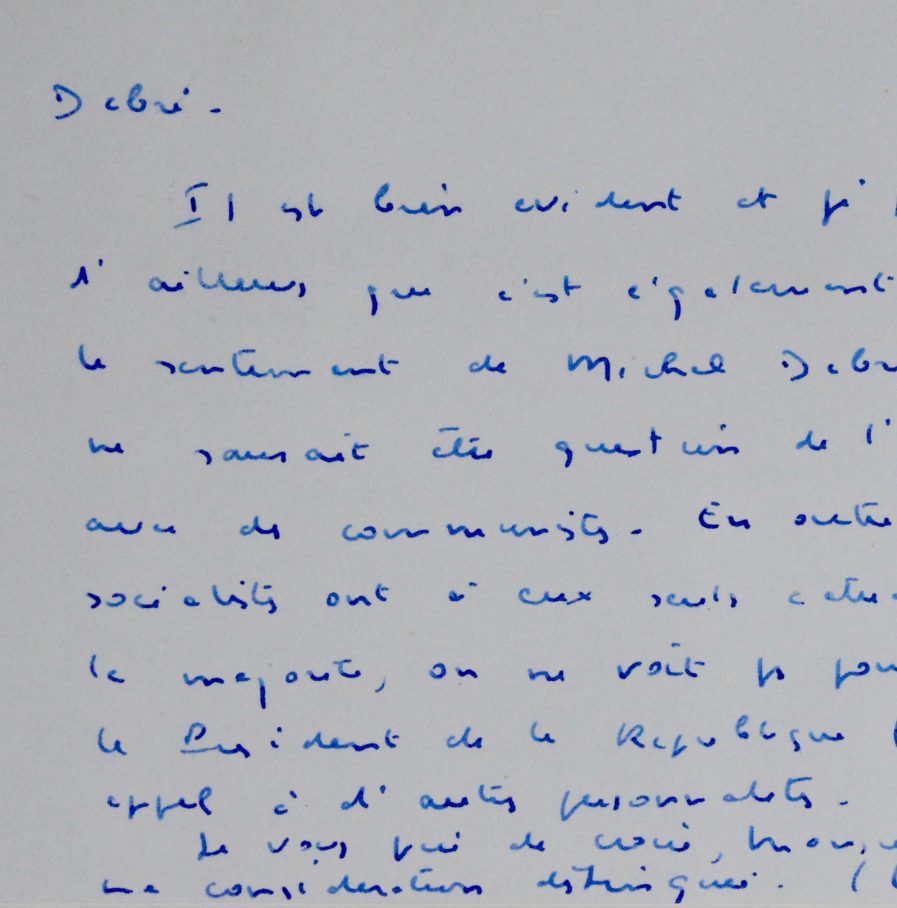 Debré.
Il est bien evident et j'
d'ailleurs que c'est également
le sentiment de Michel Debr
ne saurait être question de l'
avec des communistes. En outre
socialistes ont à eux seuls
la majorité, on ne voit pas pour
le Président de la République
appel à d'autres personnalités.
Je vous prie de croire, Mons
ma considération distinguée.